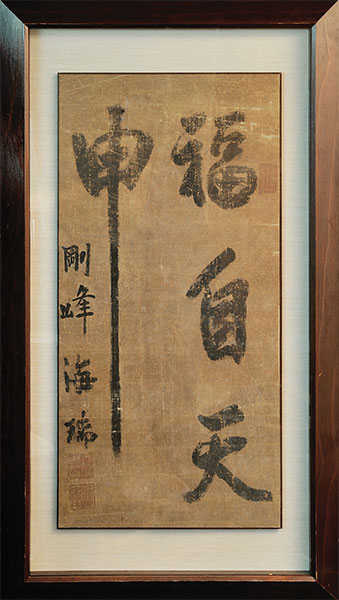 福自天
申
剛峰海瑞